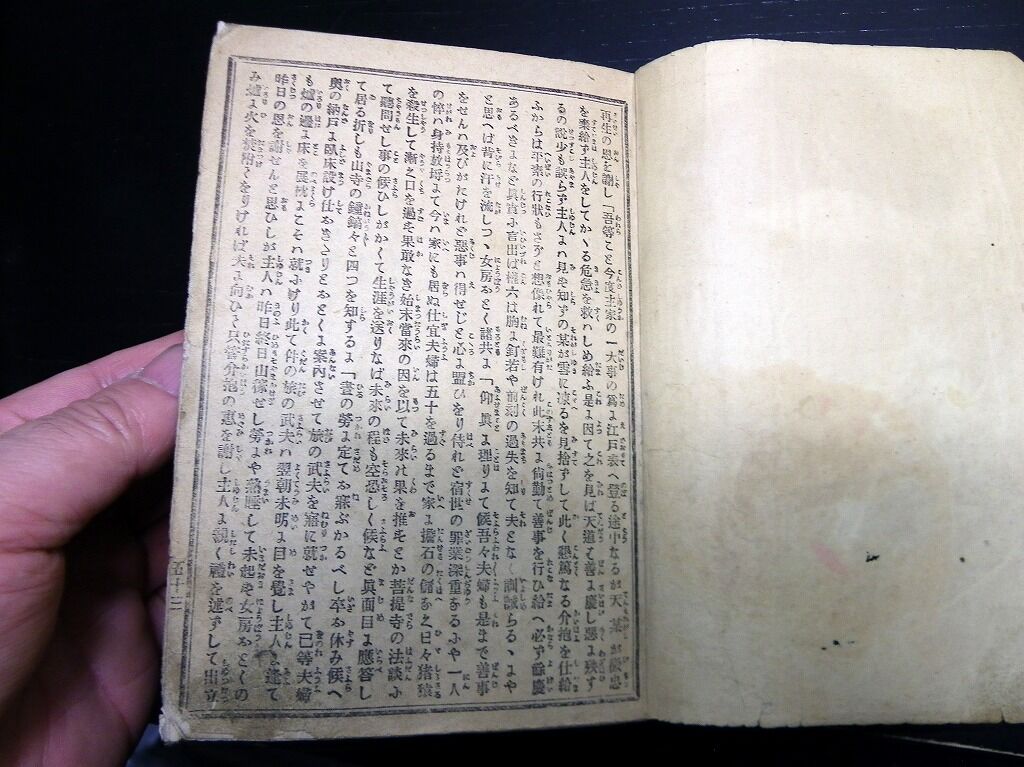 再生の恩を謝し「吾等こと今度主家の一大事の爲よ江戸表へ登る途中なるが天某が微忠
を棄給ず主人をしてかゝる危急を救ハしめ給ふ是よ因て之を見ば天道も善よ慶し惡よ殃す
るの説少も誤らず主人よハ見も知ずの某が雪に凍るを見捨ずして此く懇篤なる介抱を仕給
ふからは平素の行狀もさぞと想像れて最難有けれ此末共よ尙勤て善事を行ひ給へ必ず餘慶
あるべきよなと眞實ふ言出ば權六は胸よ釘若や前刻の過失を知て夫となく諷誡らるゝよや
と思へば背に汗を流しつゝ女房おとく諸共よ「仰眞よ理りよて候吾々夫婦も是まで善事
をせんハ及びがたけれど惡事ハ得せじと心よ盟ひをり侍れど宿世の罪業深重なるふや一人
の悴ハ身持放埓よて今ハ家にも居ぬ仕宜夫婦は五十を過るまで家よ擔石の儲なく日々猪猿
を殺生して漸々口を過す果敢なき始末當來の因を以て未來の果を推すとか菩提寺の法談ふ
て聽聞せし事の候ひしがかくて生涯を送りなば未來の程も空恐しく候など眞面目よ應答し
て居る折しも山寺の鐘鎬々と四つを知するよ「晝の勞よ定てお寐ぶかるべし卒お休み候へ
奥の納戸よ臥床設け仕おきたりとおとくよ案内させて旅の武夫を寤に就せやがて已等夫婦
も爐の邊よ床を展枕よこそハ就ふけり此て件の旅の武夫ハ翌朝未明よ目を覺し主人よ逢て
昨日の恩を謝せんと思ひしが主人ハ昨日終日山稼せし勞よや熟睡して未起ず女房おとくの
み爐よ火を焚附てをりければ夫よ向ひて只管介抱の惠を謝し主人よ親く禮を述ずして出立
五十三